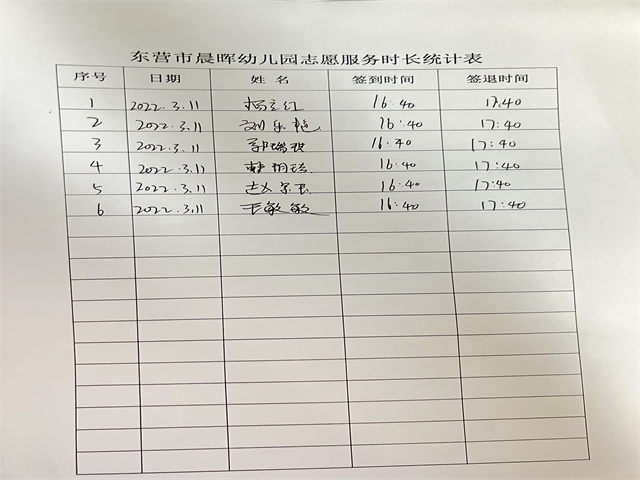 东营市晨晖幼儿园志愿服务时长统计表
序号 日期 姓名 签到时间 签退时间
1 2022.3.11 杨立红 16:40 17:40
2 2022.3.11 16:40 17:40
3 2022.3.11 16:40 17:40
4 2022.3.11 16:40 17:40
5 2022.3.11 16:40 17:40
6 2022.3.11 王敏敏 16:40 17:40